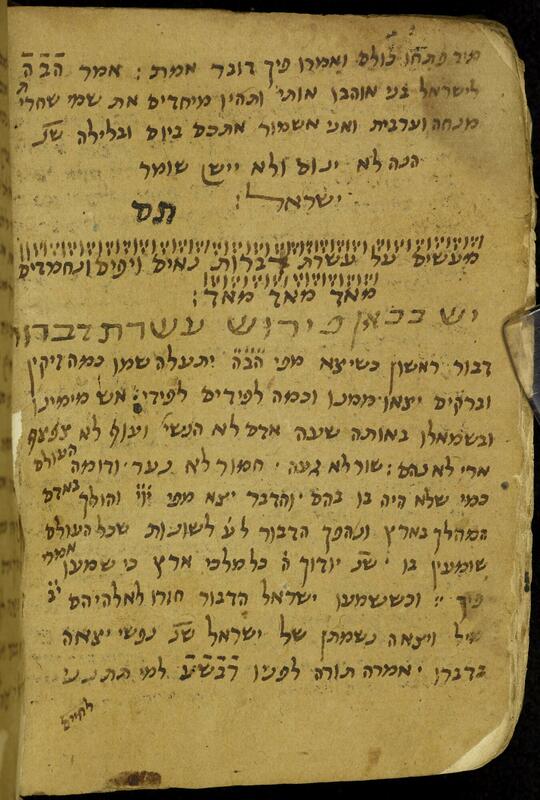 מיד פתחו כולם ואמרו פיך דובר אמת : אמר הבה
לישראל בני אוהבו אותי ותהיו מיחדים את שמי שחרית
מנחה וערבית ואני אשמור אתכם ביום ובלילה שנ
הנה לא ינום ולא יישן שומר
ישראל :
תם
מעשים על עשרת דברות נאים ויפים ונחמדים
מאד מאד מאד :
יש בכאן פירוש עשרת דברות
דבור ראשון כשיצא מפי הבה יתעלה שמו כמה זיקין
וברקים יצאו ממנו וכמה לפידים לפידי אש מימינו
ובשמאלו באותה שעה אדם לא הנפש ועוף לא צפצף
ארי לא נהם : שור לא געה . חמור לא נער ודומה העולם
כמי שלא היה בו בהם והדבר יצא מפי ייי והולך באדם
המהלך בארץ ונהפך הדבור לע לשונות שכל העולם
שומעין בו שנ יודוך ה כל מלכי ארץ כי שמעו אמרי
פיך : וכששמעו ישראל הדבור חזרו לאלהיהם
ויצאה נשמתן של ישראל שנ נפשי יצאה
בדברו . אמרה תורה לפניו רבשע למי
לחיים